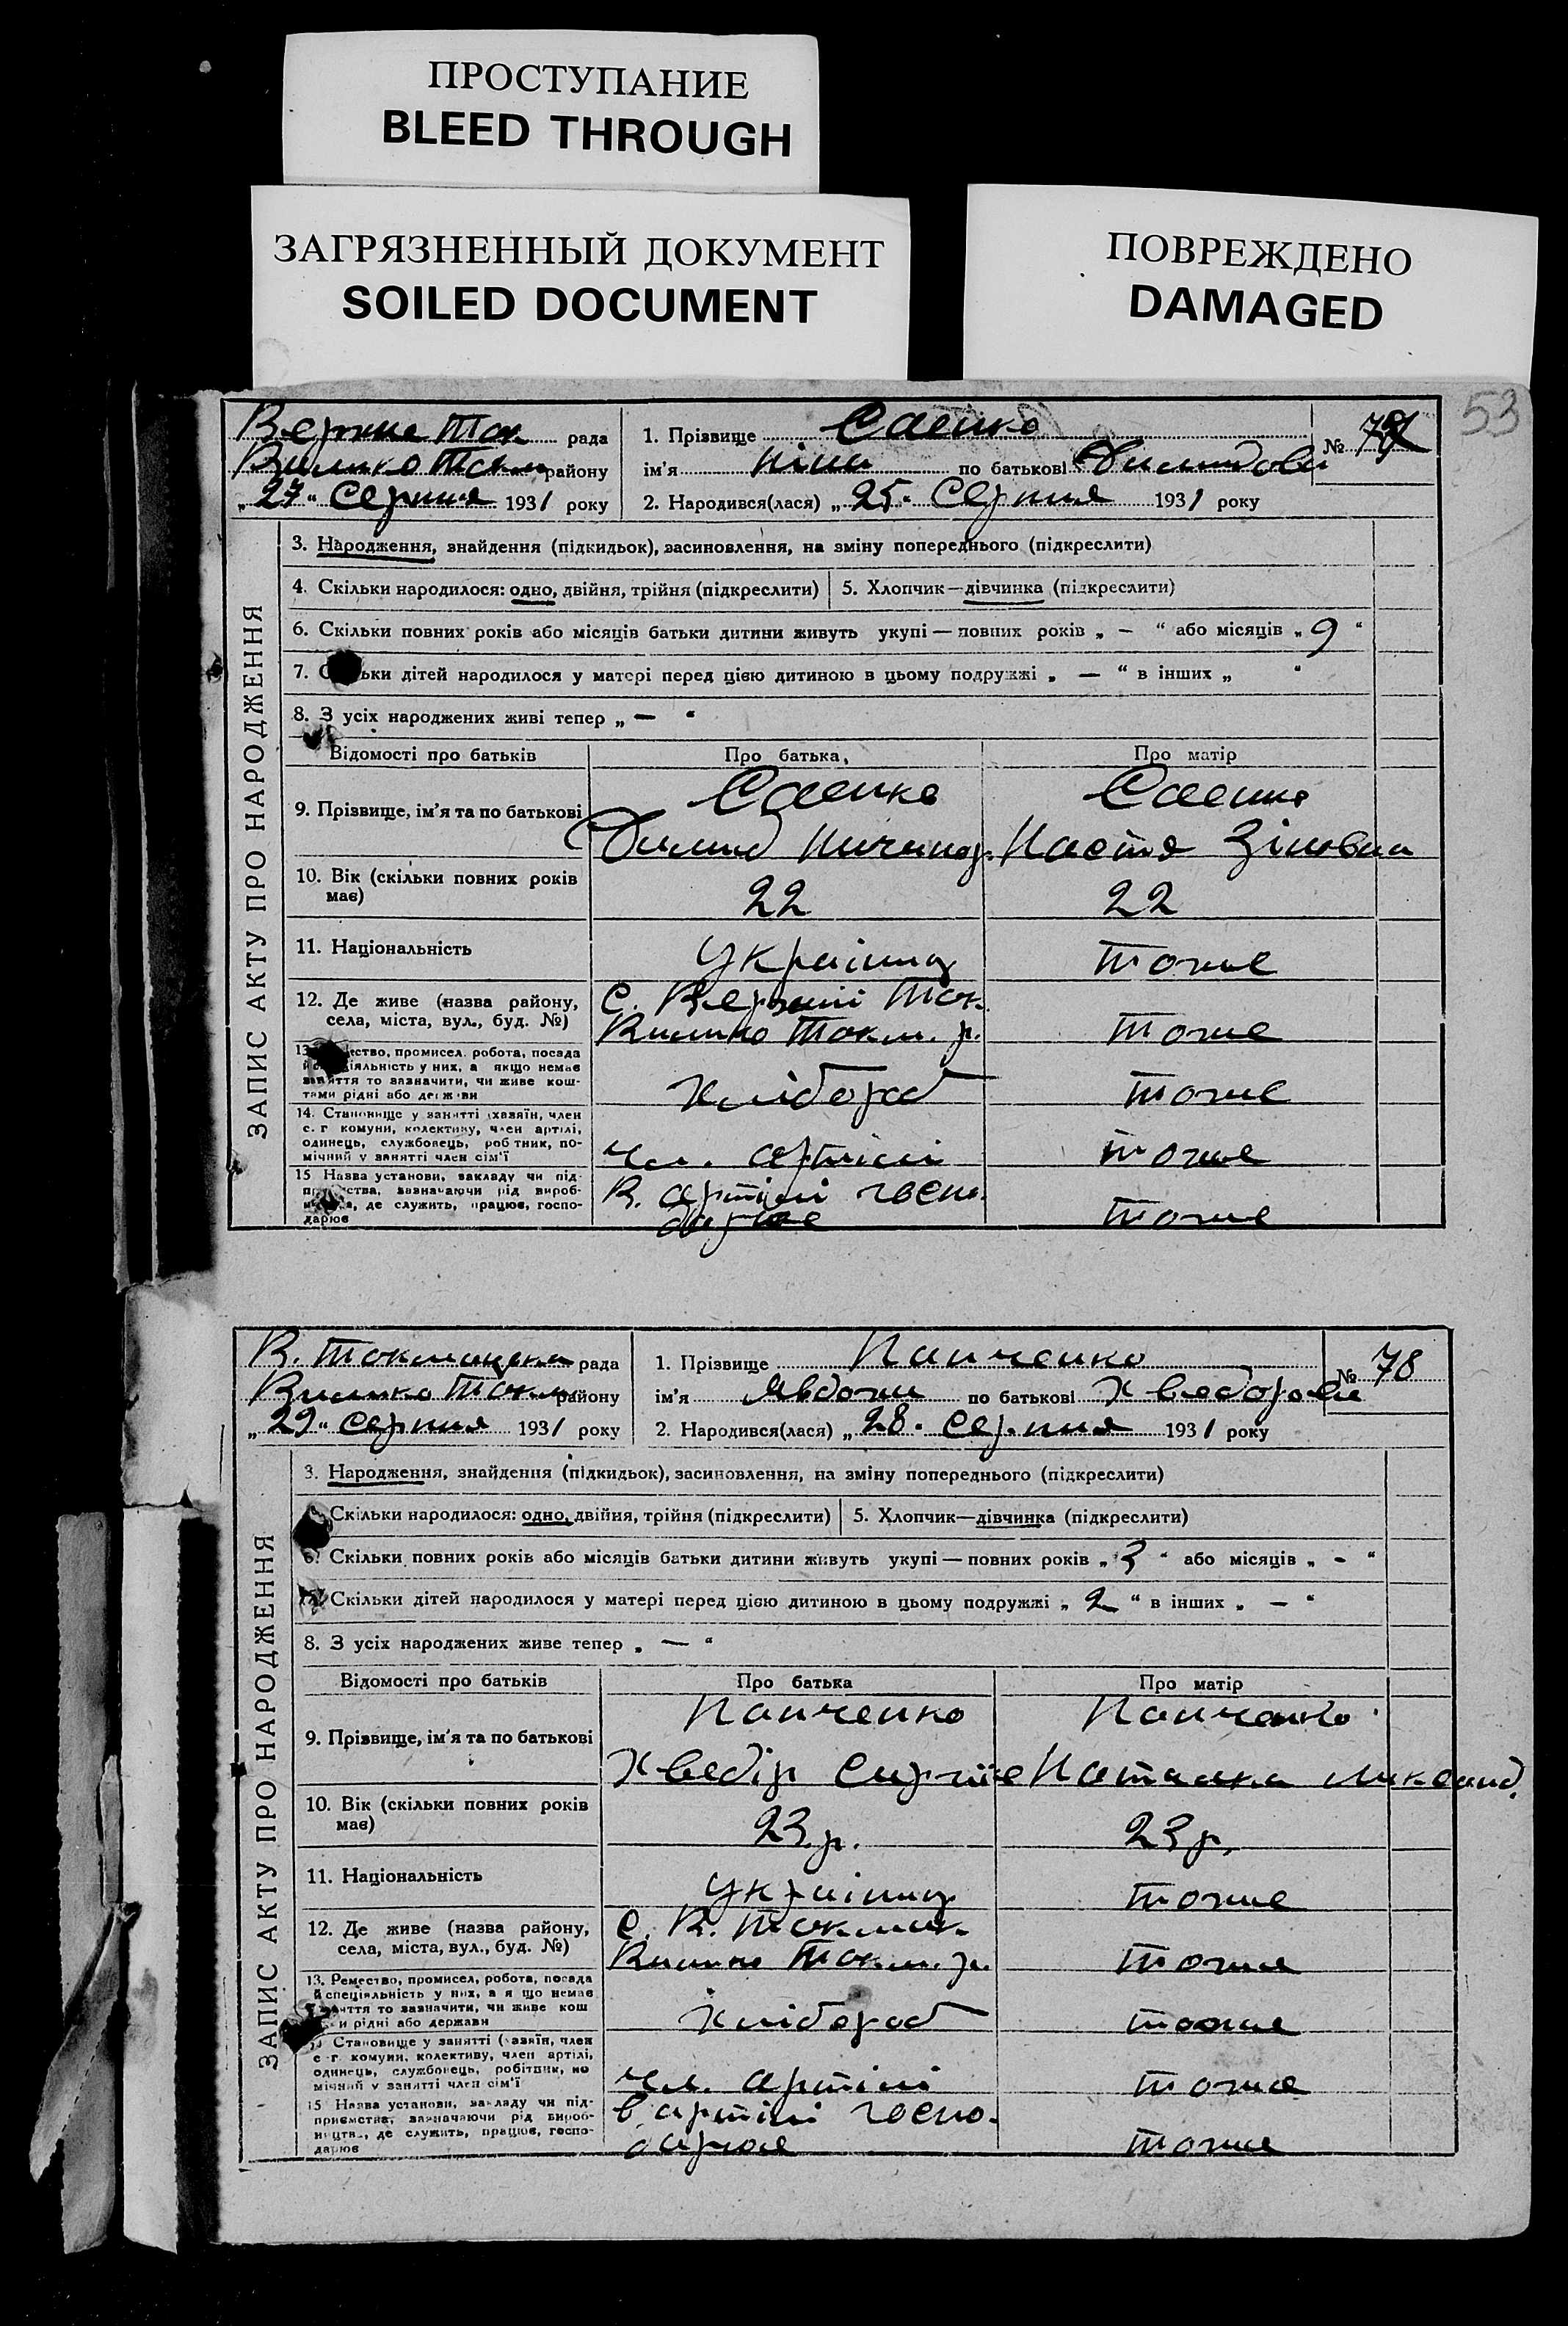 ПРОСТУПАНИЕ
BLEED THROUGH
ЗАГРЯЗНЕННЫЙ ДОКУМЕНТ
SOILED DOCUMENT
ПОВРЕЖДЕНО
DAMAGED
53
ЗАПИС АКТУ ПРО НАРОДЖЕННЯ
рада
району
„27“ Серпня 1931 року
1. Прізвище Саенко
ім'я Ніна по батькові
2. Народився(лася) „25“ Серпня 1931 року
№
3. Народження, знайдення (підкидьок), засиновлення, на зміну попереднього (підкреслити)
4. Скільки народилося: одно, двійня, трійня (підкреслити)
5. Хлопчик—дівчинка (підкреслити)
6. Скільки повних років або місяців батьки дитини живуть укупі — повних років „ — “ або місяців „ 9 “
7. дітей народилося у матері перед цією дитиною в цьому подружжі „ — “ в інших „ “
8. З усіх народжених живі тепер „ — “
Відомості про батьків
Про батька
Про матір
9. Прізвище, ім'я та по батькові
Саенко
Саенко
Настя
10. Вік (скільки повних років має)
22
22
11. Національність
Українц
тоже
12. Де живе (назва району, села, міста, вул., буд. №)
с. Верхній Ток.
Ток м. р.
тоже
промисел, робота, посада
у них, а якщо немає
заняття то зазначити, чи живе кош-
тами рідні або держави
Хлібороб
тоже
14. Становище у занятті (хазяїн, член
с. г комуни, колективу, член артілі,
одинець, службовець, робітник, по-
мічний у занятті член сім'ї
чл. артілі
тоже
15 Назва установи, закладу чи під-
зазначаючи рід вироб-
де служить, працює, госпо-
дарює
В. артілі госпо-
дарює
тоже
ЗАПИС АКТУ ПРО НАРОДЖЕННЯ
В. рада
району
„29“ Серпня 1931 року
1. Прізвище Панченко
ім'я Явдоха по батькові Хведорова
2. Народився(лася) „28“ Серпня 1931 року
№ 78
3. Народження, знайдення (підкидьок), засиновлення, на зміну попереднього (підкреслити)
Скільки народилося: одно, двійня, трійня (підкреслити)
5. Хлопчик—дівчинка (підкреслити)
6. Скільки повних років або місяців батьки дитини живуть укупі — повних років „ 3 “ або місяців „ - “
Скільки дітей народилося у матері перед цією дитиною в цьому подружжі „ 2 “ в інших „ — “
8. З усіх народжених живе тепер „ — “
Відомості про батьків
Про батька
Про матір
9. Прізвище, ім'я та по батькові
Панченко
Панченко
Хведір
Наталка
10. Вік (скільки повних років має)
23 р.
23 р.
11. Національність
Українц
тоже
12. Де живе (назва району, села, міста, вул., буд. №)
с. В. Токмак
Токм. р.
тоже
13. Ремество, промисел, робота, посада
й спеціяльність у них, а я що немає
то зазначити, чи живе кош
и рідні або держави
Хлібороб
тоже
Становище у занятті (хазяїн, член
с г комуни, колективу, член артілі,
одинець, службовець, робітник, по
мічний у занятті член сім'ї
чл. артілі
тоже
15 Назва установи, закладу чи під-
приємства, зазначаючи рід вироб-
ництв., де служить, працює, госпо-
дарює
в артілі госпо-
дарює
тоже